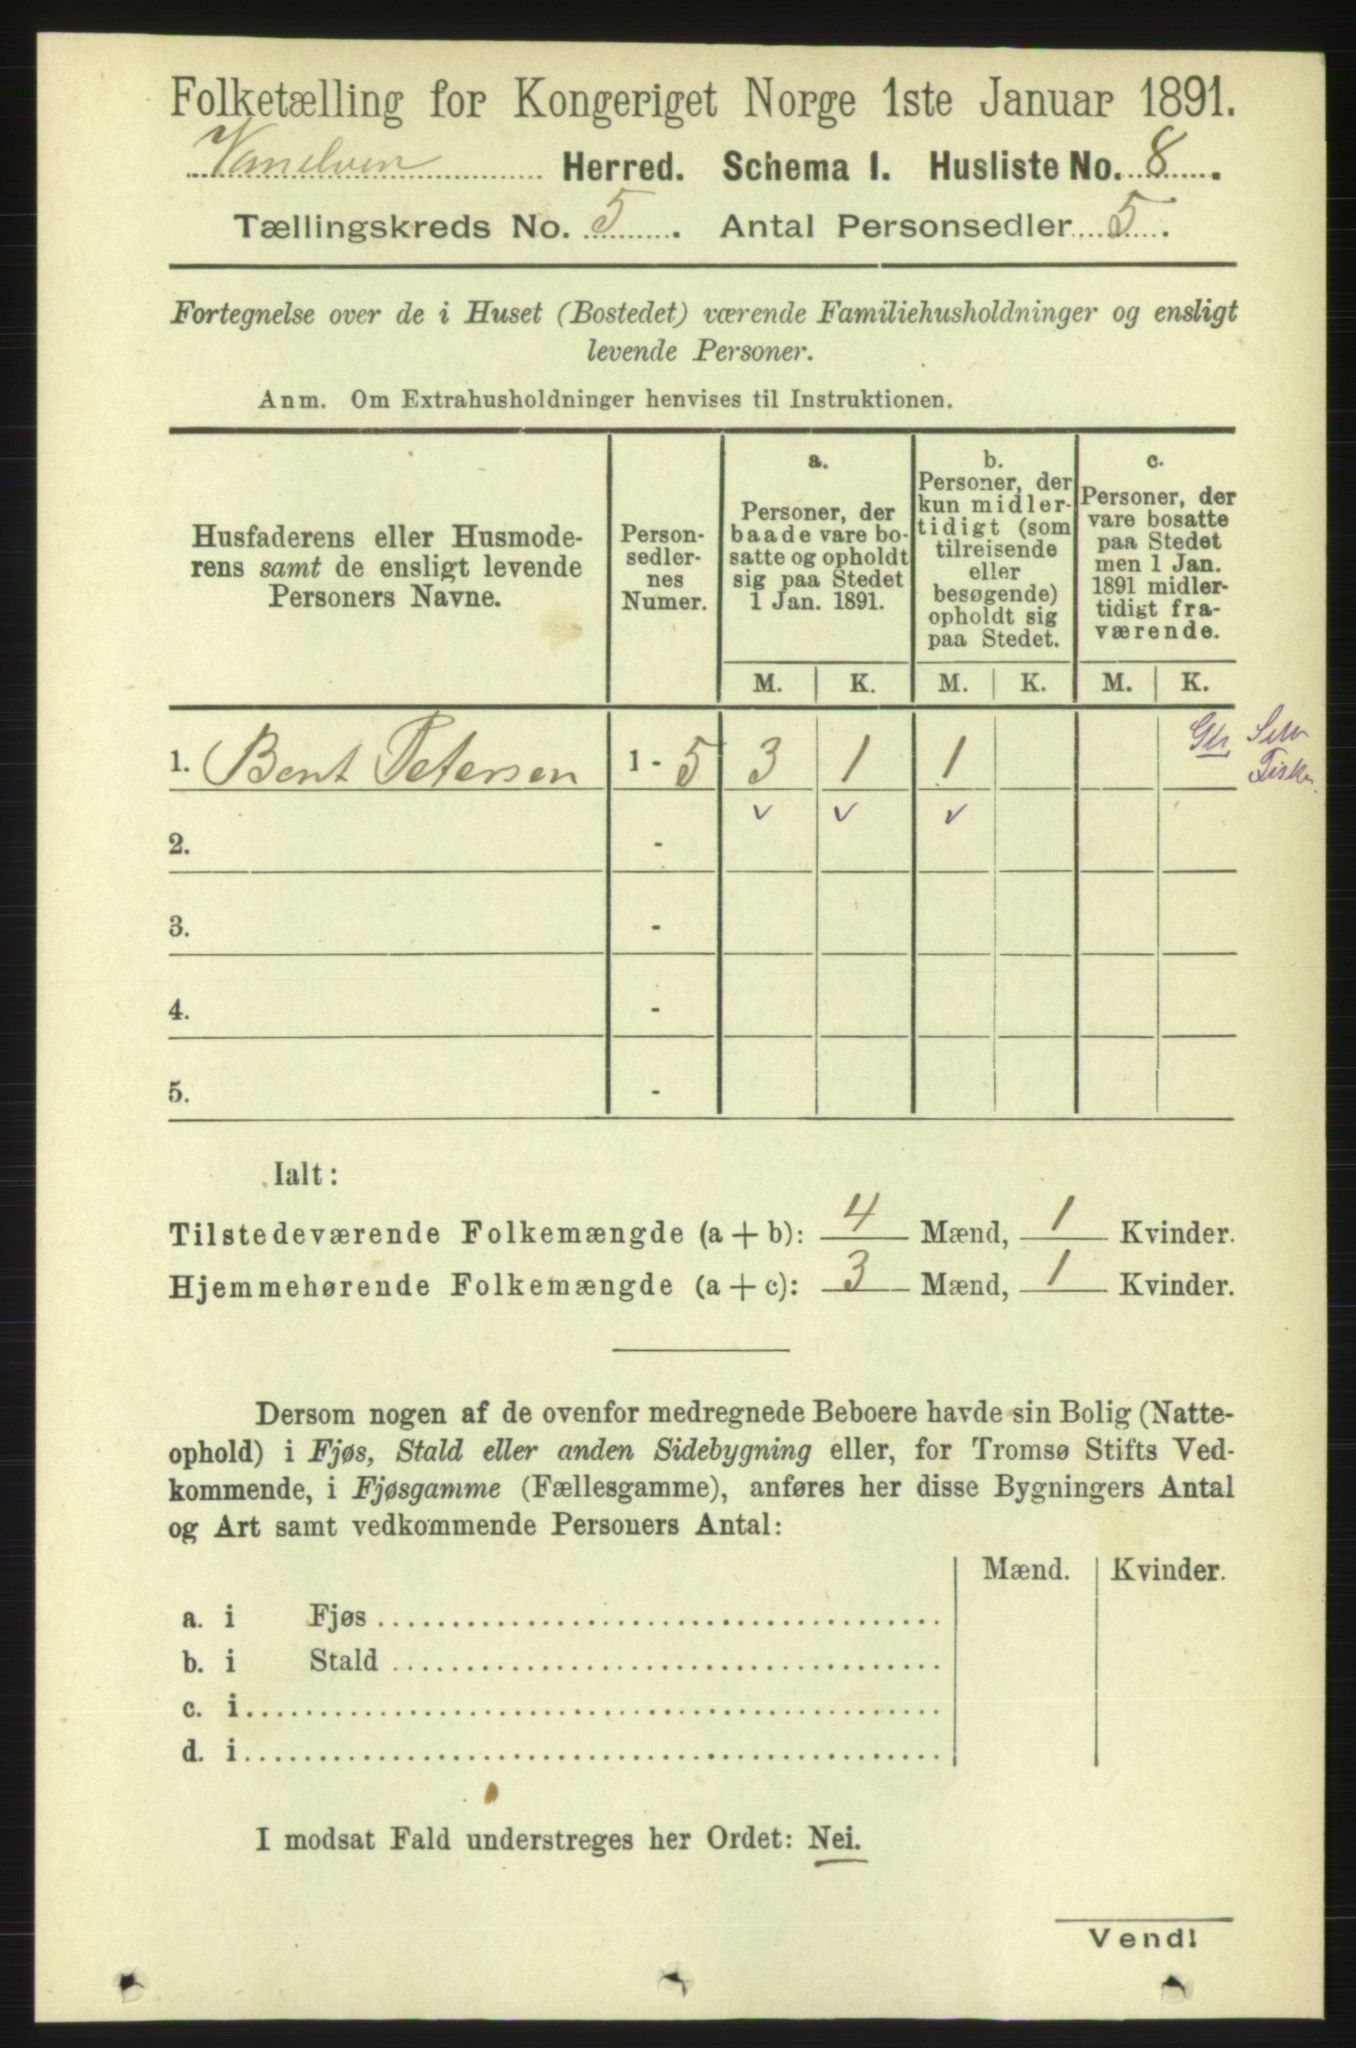 Folketælling for Kongeriget Norge 1ste Januar 1891.
Vanelven Herred. Schema I. Husliste No. 8.
Tællingskreds No. 5. Antal Personsedler 5.
Fortegnelse over de i Huset (Bostedet) værende Familiehusholdninger og ensligt
levende Personer.
Anm. Om Extrahusholdninger henvises til Instruktionen.
Husfaderens eller Husmode-
rens samt de ensligt levende
Personers Navne.
Person-
sedler-
nes
Numer.
a.
Personer, der
baade vare bo-
satte og opholdt
sig paa Stedet
1 Jan. 1891.
b.
Personer, der
kun midler-
tidigt (som
tilreisende
eller
besøgende)
opholdt sig
paa Stedet.
c.
Personer, der
vare bosatte
paa Stedet
men 1 Jan.
1891 midler-
tidigt fra-
værende.
M. K. M. K. M. K.
1. Bent Petersen 1 - 5 3 1 1
2. -
3. -
4. -
5. -
Ialt:
Tilstedeværende Folkemængde (a + b): 4 Mænd, 1 Kvinder.
Hjemmehørende Folkemængde (a + c): 3 Mænd, 1 Kvinder.
Dersom nogen af de ovenfor medregnede Beboere havde sin Bolig (Natte-
ophold) i Fjøs, Stald eller anden Sidebygning eller, for Tromsø Stifts Ved-
kommende, i Fjøsgamme (Fællesgamme), anføres her disse Bygningers Antal
og Art samt vedkommende Personers Antal:
Mænd. Kvinder.
a. i Fjøs
b. i Stald
c. i
d. i
I modsat Fald understreges her Ordet: Nei.
Vend!